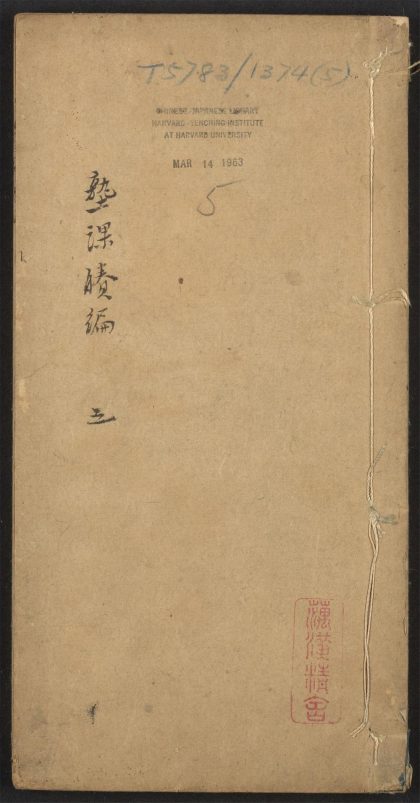 T5783/1374(5)
CHINESE-JAPANESE LIBRARY
HARVARD-YENCHING INSTITUTE
AT HARVARD UNIVERSITY
MAR 14 1963
5
塾課賸編 五
漢精舍